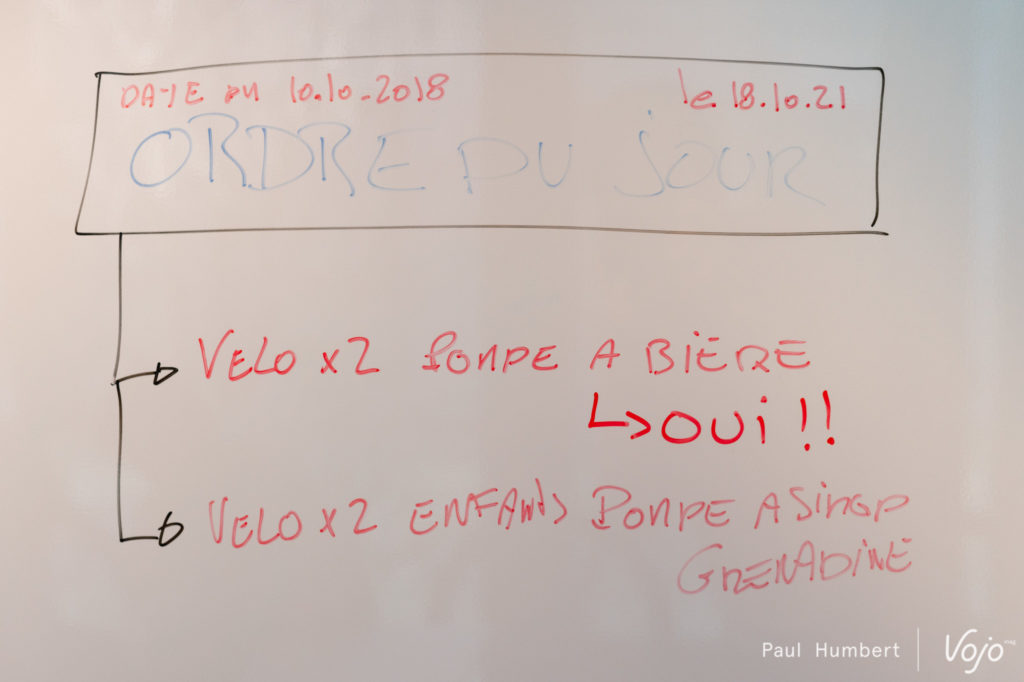 DATE DU 10.10.2018 le 18.10.21
ORDRE DU JOUR
VELO x2 POMPE A BIÈRE
OUI !!
VELO x2 ENFANTS POMPE A SIROP
GRENADINE
Paul Humbert Vojo mag